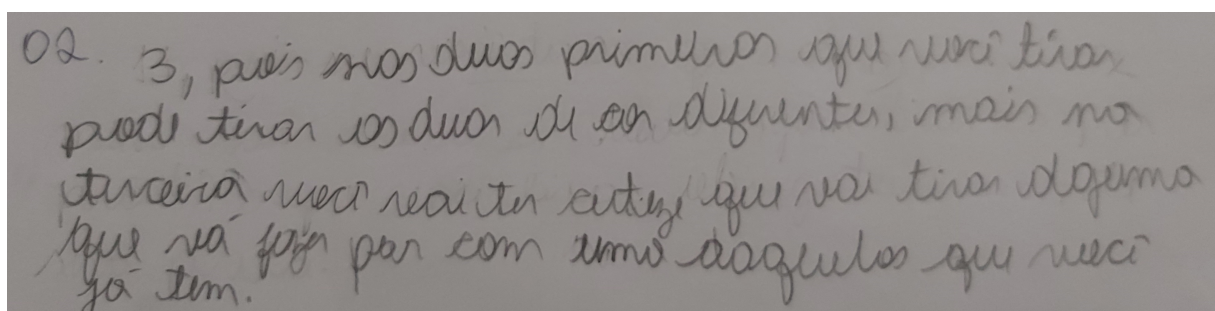 02. 3, pois nas duas primeiras que você tirar
pode tirar as duas de cor diferentes, mais na
terceira você vai ter certeza que vai tirar alguma
que vá fazer par com uma daquelas que você
já tem.